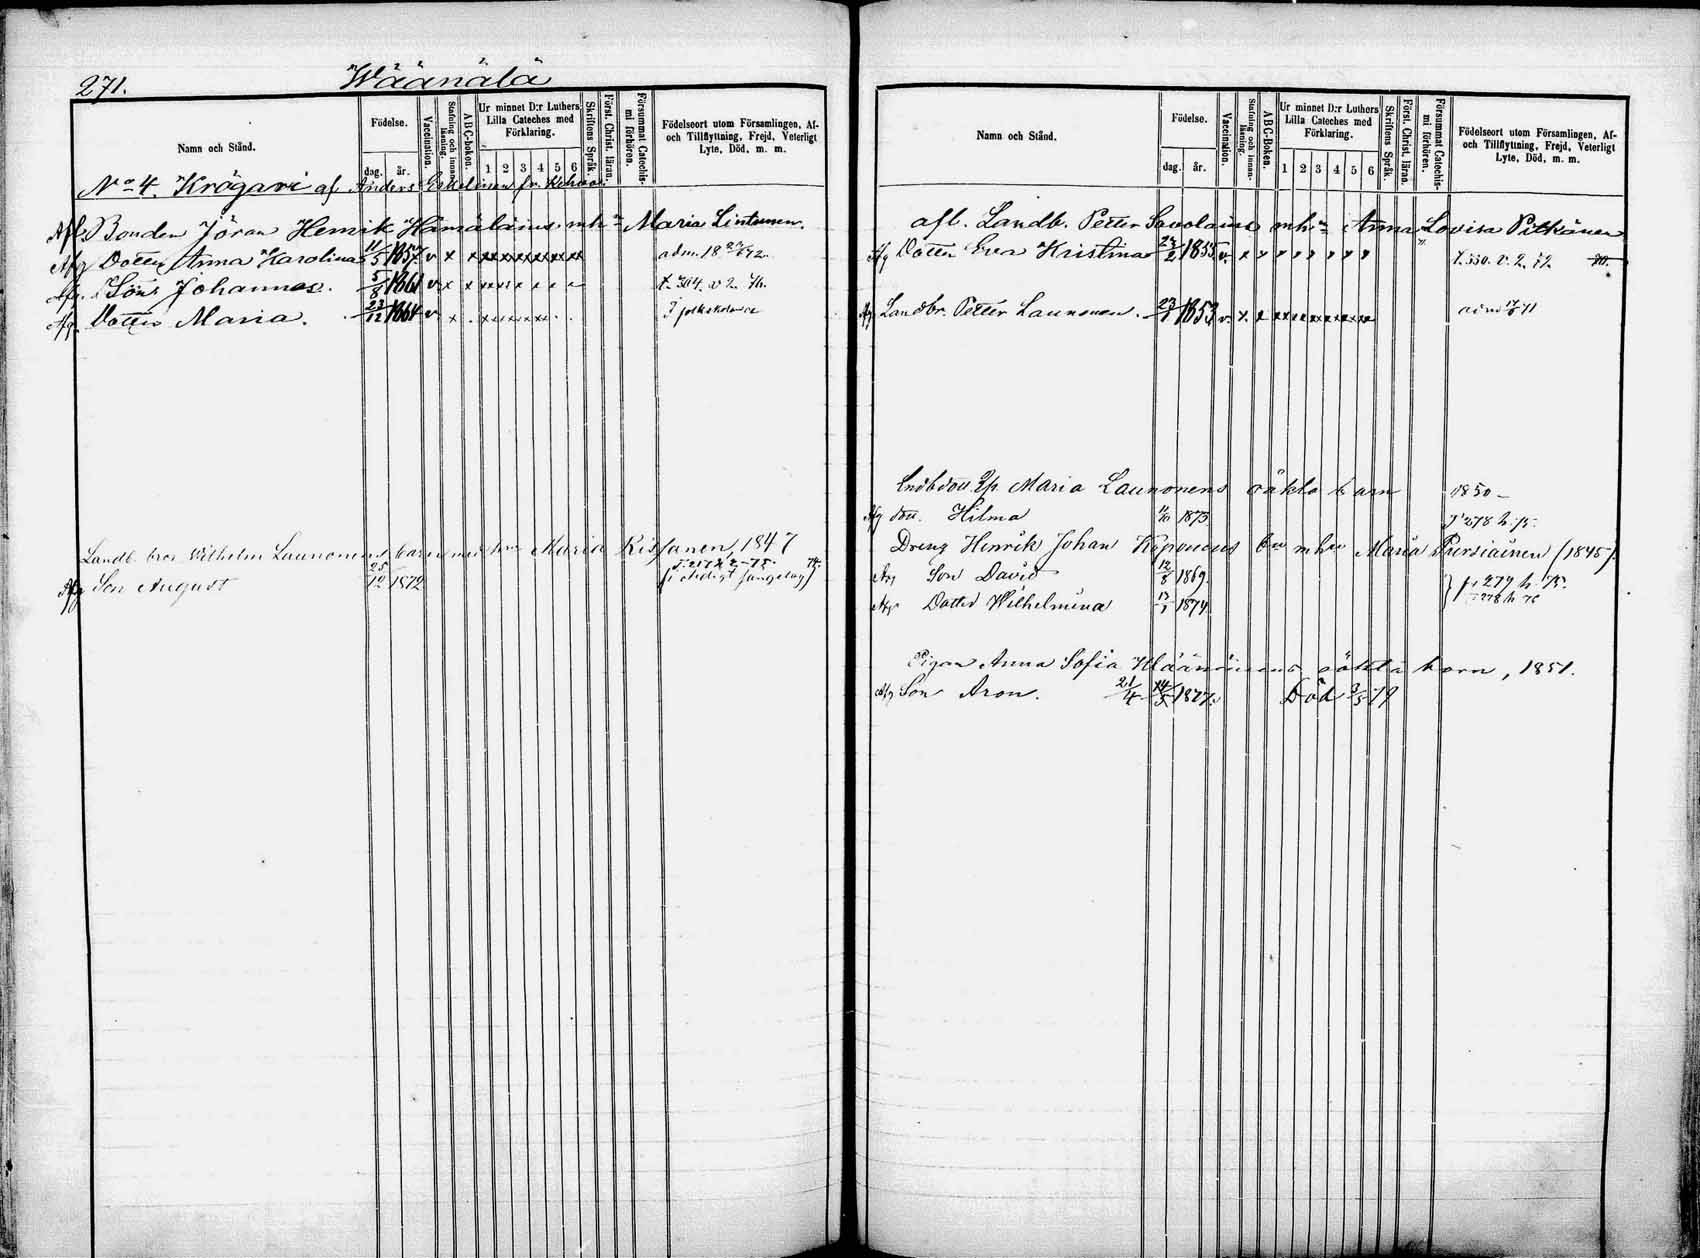 271.
Wäänälä
Namn och Stånd.
Födelse.
dag. år.
Vaccination.
Stafning och innan-läsning.
ABC-boken.
Ur minnet D:r Luthers Lilla Cateches med Förklaring.
1 2 3 4 5 6
Skriftens Språk.
Först. Christ. läran.
Försummat Catechis-mi förhören.
Födelseort utom Församlingen, Af- och Tillflyttning, Frejd, Veterligt Lyte, Död, m. m.
No 4. Krögari af Anders Eskelinen fr.
Afl. Bonden Jöran Henrik Hämäläinens mhu Maria Lintunen.
Afg Dotter Anna Karolina 11/5 1857 v x x xxxxxxxxxx adm. 18
Afg. Son Johannes. 5/8 1861 v x x t. 304. v 2. 76.
Afg. Dotter Maria. 23/12 1864 v. x . i folkskolan
Landb. bror Wilhelm Launonens barn med hru Maria Rissanen, 1847
Afg Son August 25/12 1872
Namn och Stånd.
Födelse.
dag. år.
Vaccination.
Stafning och innan-läsning.
ABC-Boken.
Ur minnet D:r Luthers Lilla Cateches med Förklaring.
1 2 3 4 5 6
Skriftens Språk.
Först. Christ. läran.
Försummat Catechis-mi förhören.
Födelseort utom Församlingen, Af- och Tillflyttning, Frejd, Veterligt Lyte, Död, m. m.
afl. Landb. Petter Savolains mhu Anna Lovisa Pitkänen
Afg Dotter Eva Kristina 24/2 1855 v. x t. 330. v. 2. 72
Afg Landbr. Petter Launonen. 23/1 1853 v. x. x adm 71
Lndbdott. Maria Launonens oäkta barn 1850
Afg dott. Hilma 1875 278 h. 75.
Dreng Hinrik Johan Koponens bn mhru Maria Pursiainen (1845)
Afg Son David 12/8 1869. 279 h. 75.
Afg Dotter Wilhelmina 13/1 1874. 278 h 76
Pigan Anna Sofia Väänäinens oäkta barn, 1851.
Afg Son Aron. 21/4 14/5 1877. Död 3/5 79